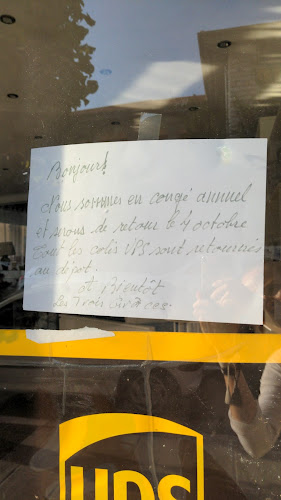 Bonjour!
Nous sommes en congé annuel
et serons de retour le 4 octobre
Tout les colis UPS sont retournés
au depot.
a Bientôt
Les Trois
UPS